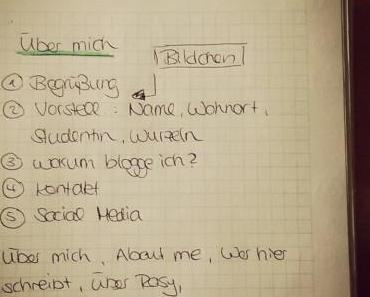 Über mich
Bildchen
① Begrüßung
② Vorstell : Name, Wohnort,
Studentin, Wurzeln
③ warum blogge ich?
④ Kontakt
⑤ Social Media
Über mich, About me, Wer hier
schreibt, Über Rosy,